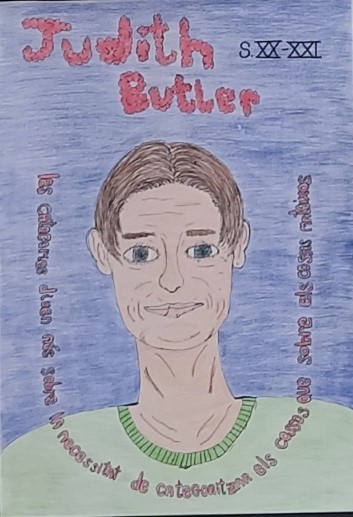 Judith
S.XX-XXI
Butler
les categories diuen més sobre la necessitat de categoritzar els cossos que sobre els cossos